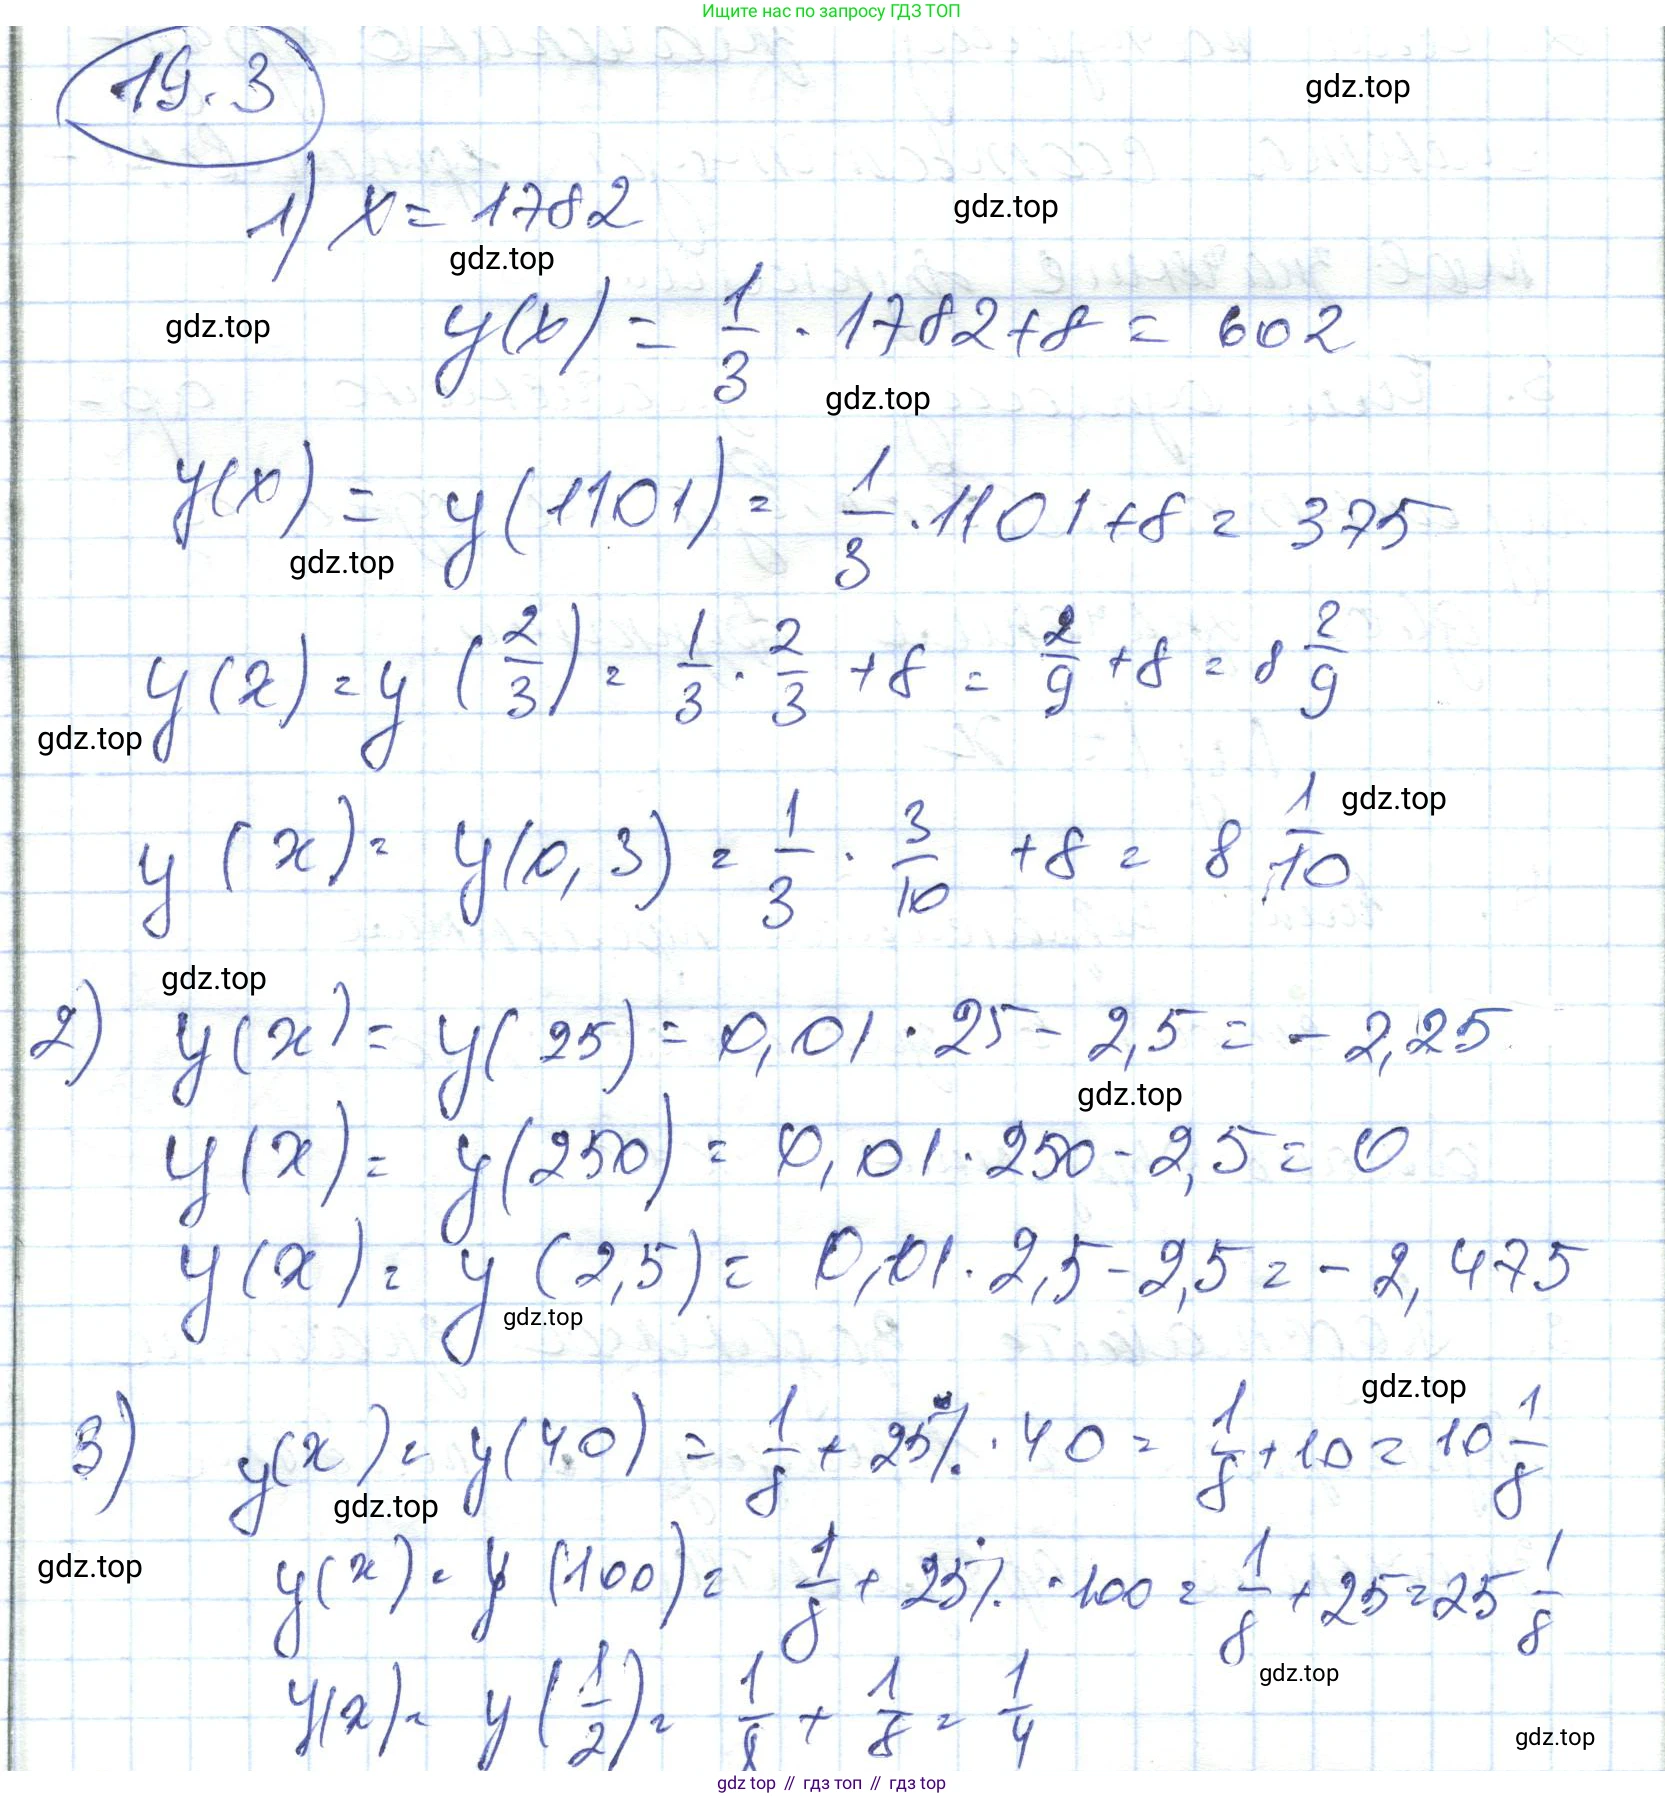 Ищите нас по запросу ГДЗ ТОП
19.3
gdz.top
1) x = 1782
gdz.top
gdz.top
gdz.top
y(x) = 1/3 · 1782 + 8 = 602
gdz.top
y(x) = y(1101) = 1/3 · 1101 + 8 = 375
gdz.top
y(x) = y(2/3) = 1/3 · 2/3 + 8 = 2/9 + 8 = 8 2/9
gdz.top
gdz.top
y(x) = y(0,3) = 1/3 · 3/10 + 8 = 8 1/10
gdz.top
2) y(x) = y(25) = 0,01 · 25 - 2,5 = -2,25
gdz.top
y(x) = y(250) = 0,01 · 250 - 2,5 = 0
y(x) = y(2,5) = 0,01 · 2,5 - 2,5 = -2,475
gdz.top
gdz.top
3) y(x) = y(40) = 1/8 + 25% · 40 = 1/8 + 10 = 10 1/8
gdz.top
gdz.top
y(x) = y(100) = 1/8 + 25% · 100 = 1/8 + 25 = 25 1/8
gdz.top
y(x) = y(1/2) = 1/8 + 1/8 = 1/4
gdz.top
gdz top // гдз топ // gdz top